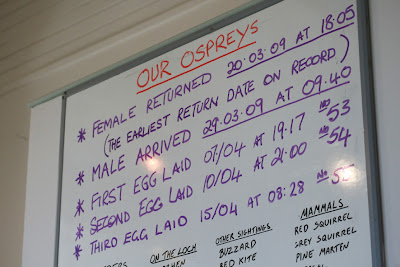 OUR OSPREYS
* FEMALE RETURNED 20·03·09 AT 18:05
(THE EARLIEST RETURN DATE ON RECORD)
* MALE ARRIVED 29·03·09 AT 09·40
* FIRST EGG LAID 07/04 AT 19·17 No 53
* SECOND EGG LAID 10/04 AT 21:00 No 54
* THIRD EGG LAID 15/04 AT 08:28 No 55
ON THE LOCH
OTHER SIGHTINGS
BUZZARD
RED KITE
MAMMALS
RED SQUIRREL
GREY SQUIRREL
PINE MARTEN